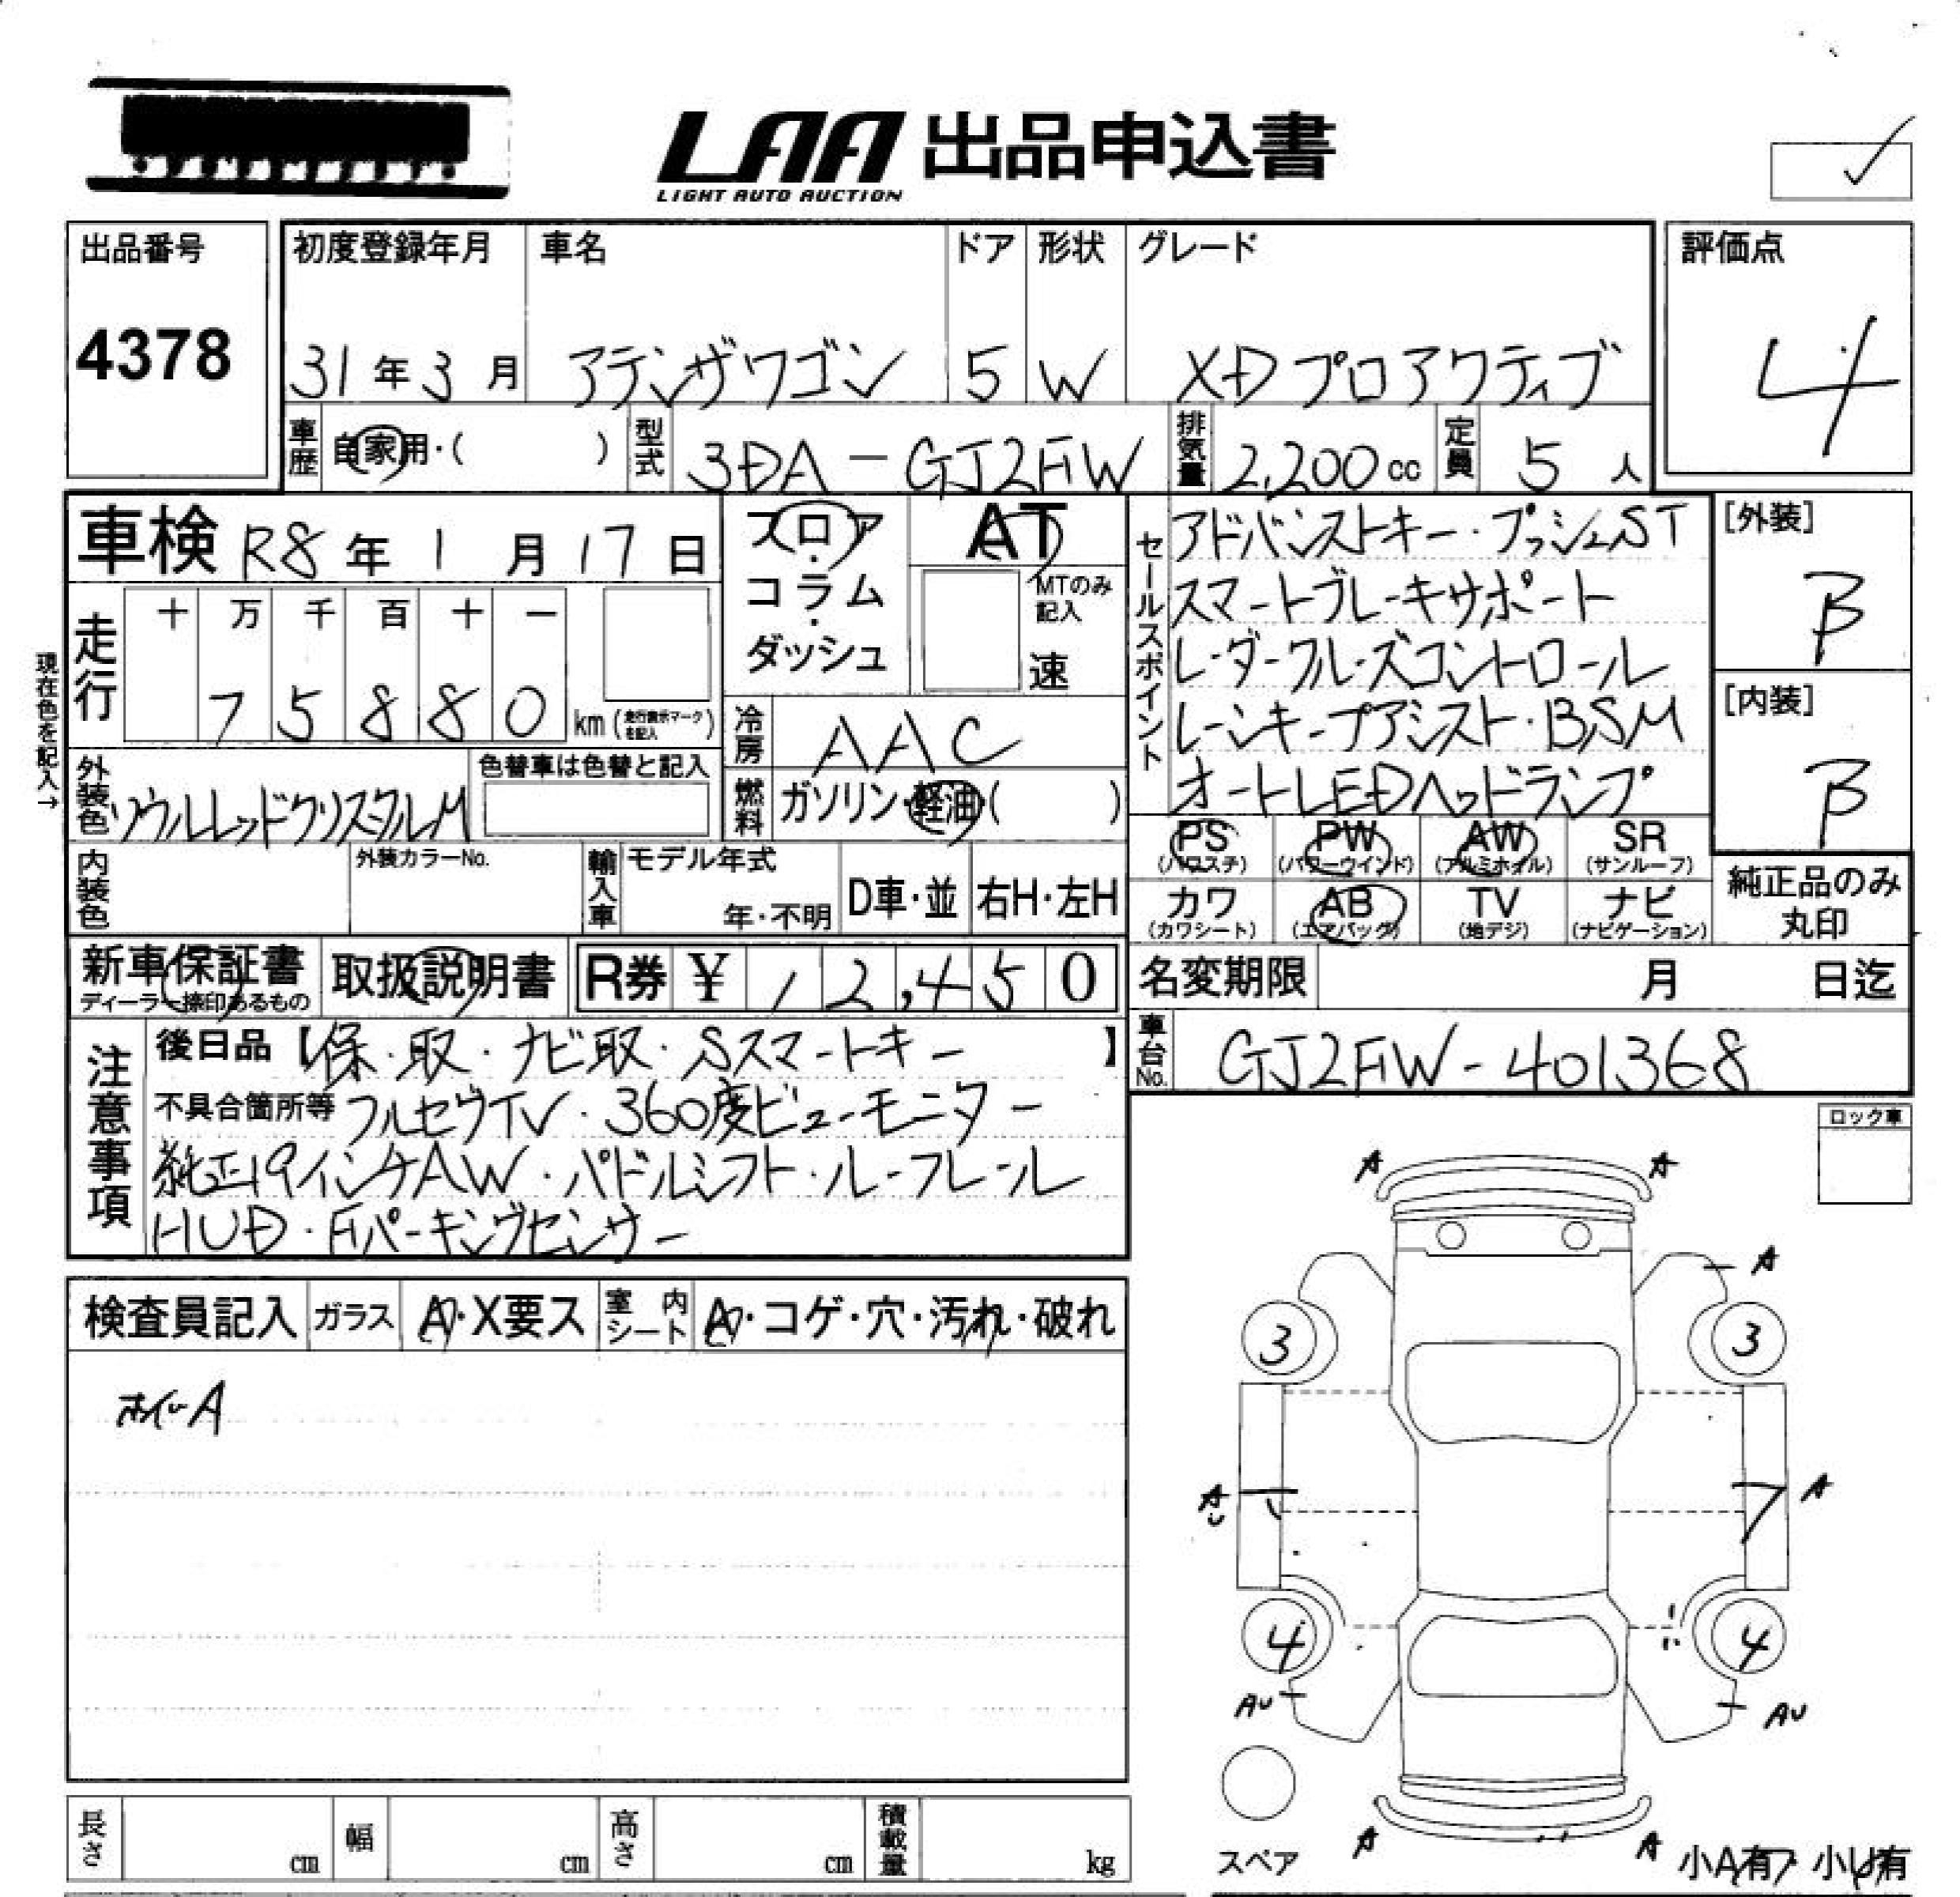 LAA 出品申込書
LIGHT AUTO AUCTION
出品番号
4378
初度登録年月
31年3月
車名
アテンザワゴン
ドア
5
形状
W
グレード
XDプロアクティブ
評価点
4
車歴
自家用・( )
型式
3DA-GJ2FW
排気量
2,200cc
定員
5人
車検 R8年1月17日
フロア・コラム・ダッシュ
AT
MTのみ記入
速
セールスポイント
アドバンストキー・プッシュST
スマートブレーキサポート
レーダークルーズコントロール
レーンキープアシスト・BSM
オートLEDヘッドランプ
[外装]
B
[内装]
B
現在色を記入→
走行
十 万 千 百 十 一
7 5 8 8 0 km (走行表示マークを記入)
冷房
AAC
燃料
ガソリン・軽油( )
外装色
ソウルレッドクリスタルM
色替車は色替と記入
内装色
外装カラーNo.
輸入車
モデル年式
年・不明
D車・並
右H・左H
PS (パワステ)
PW (パワーウインド)
AW (アルミホイル)
SR (サンルーフ)
カワ (カワシート)
AB (エアバッグ)
TV (地デジ)
ナビ (ナビゲーション)
純正品のみ丸印
新車保証書
ディーラー捺印あるもの
取扱説明書
R券 ¥ 12,450
名変期限 月 日迄
車台No.
GJ2FW-401368
注意事項
後日品【保・取・ナビ取・Sスマートキー】
不具合箇所等 フルセグTV・360度ビューモニター
純正19インチAW・パドルシフト・ルーフレール
HUD・Fパーキングセンサー
ロック車
検査員記入
ガラス
A・X要ス
室内シート
A・コゲ・穴・汚れ・破れ
ホイールA
A A
A
3 3
A A
4 4
AU AU
A A
スペア
小A有 小U有
長さ cm
幅 cm
高さ cm
積載量 kg